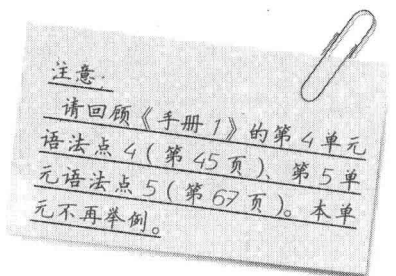 注意：
请回顾《手册1》的第4单元
语法点4（第45页）、第5单
元语法点5（第67页）。本单
元不再举例。